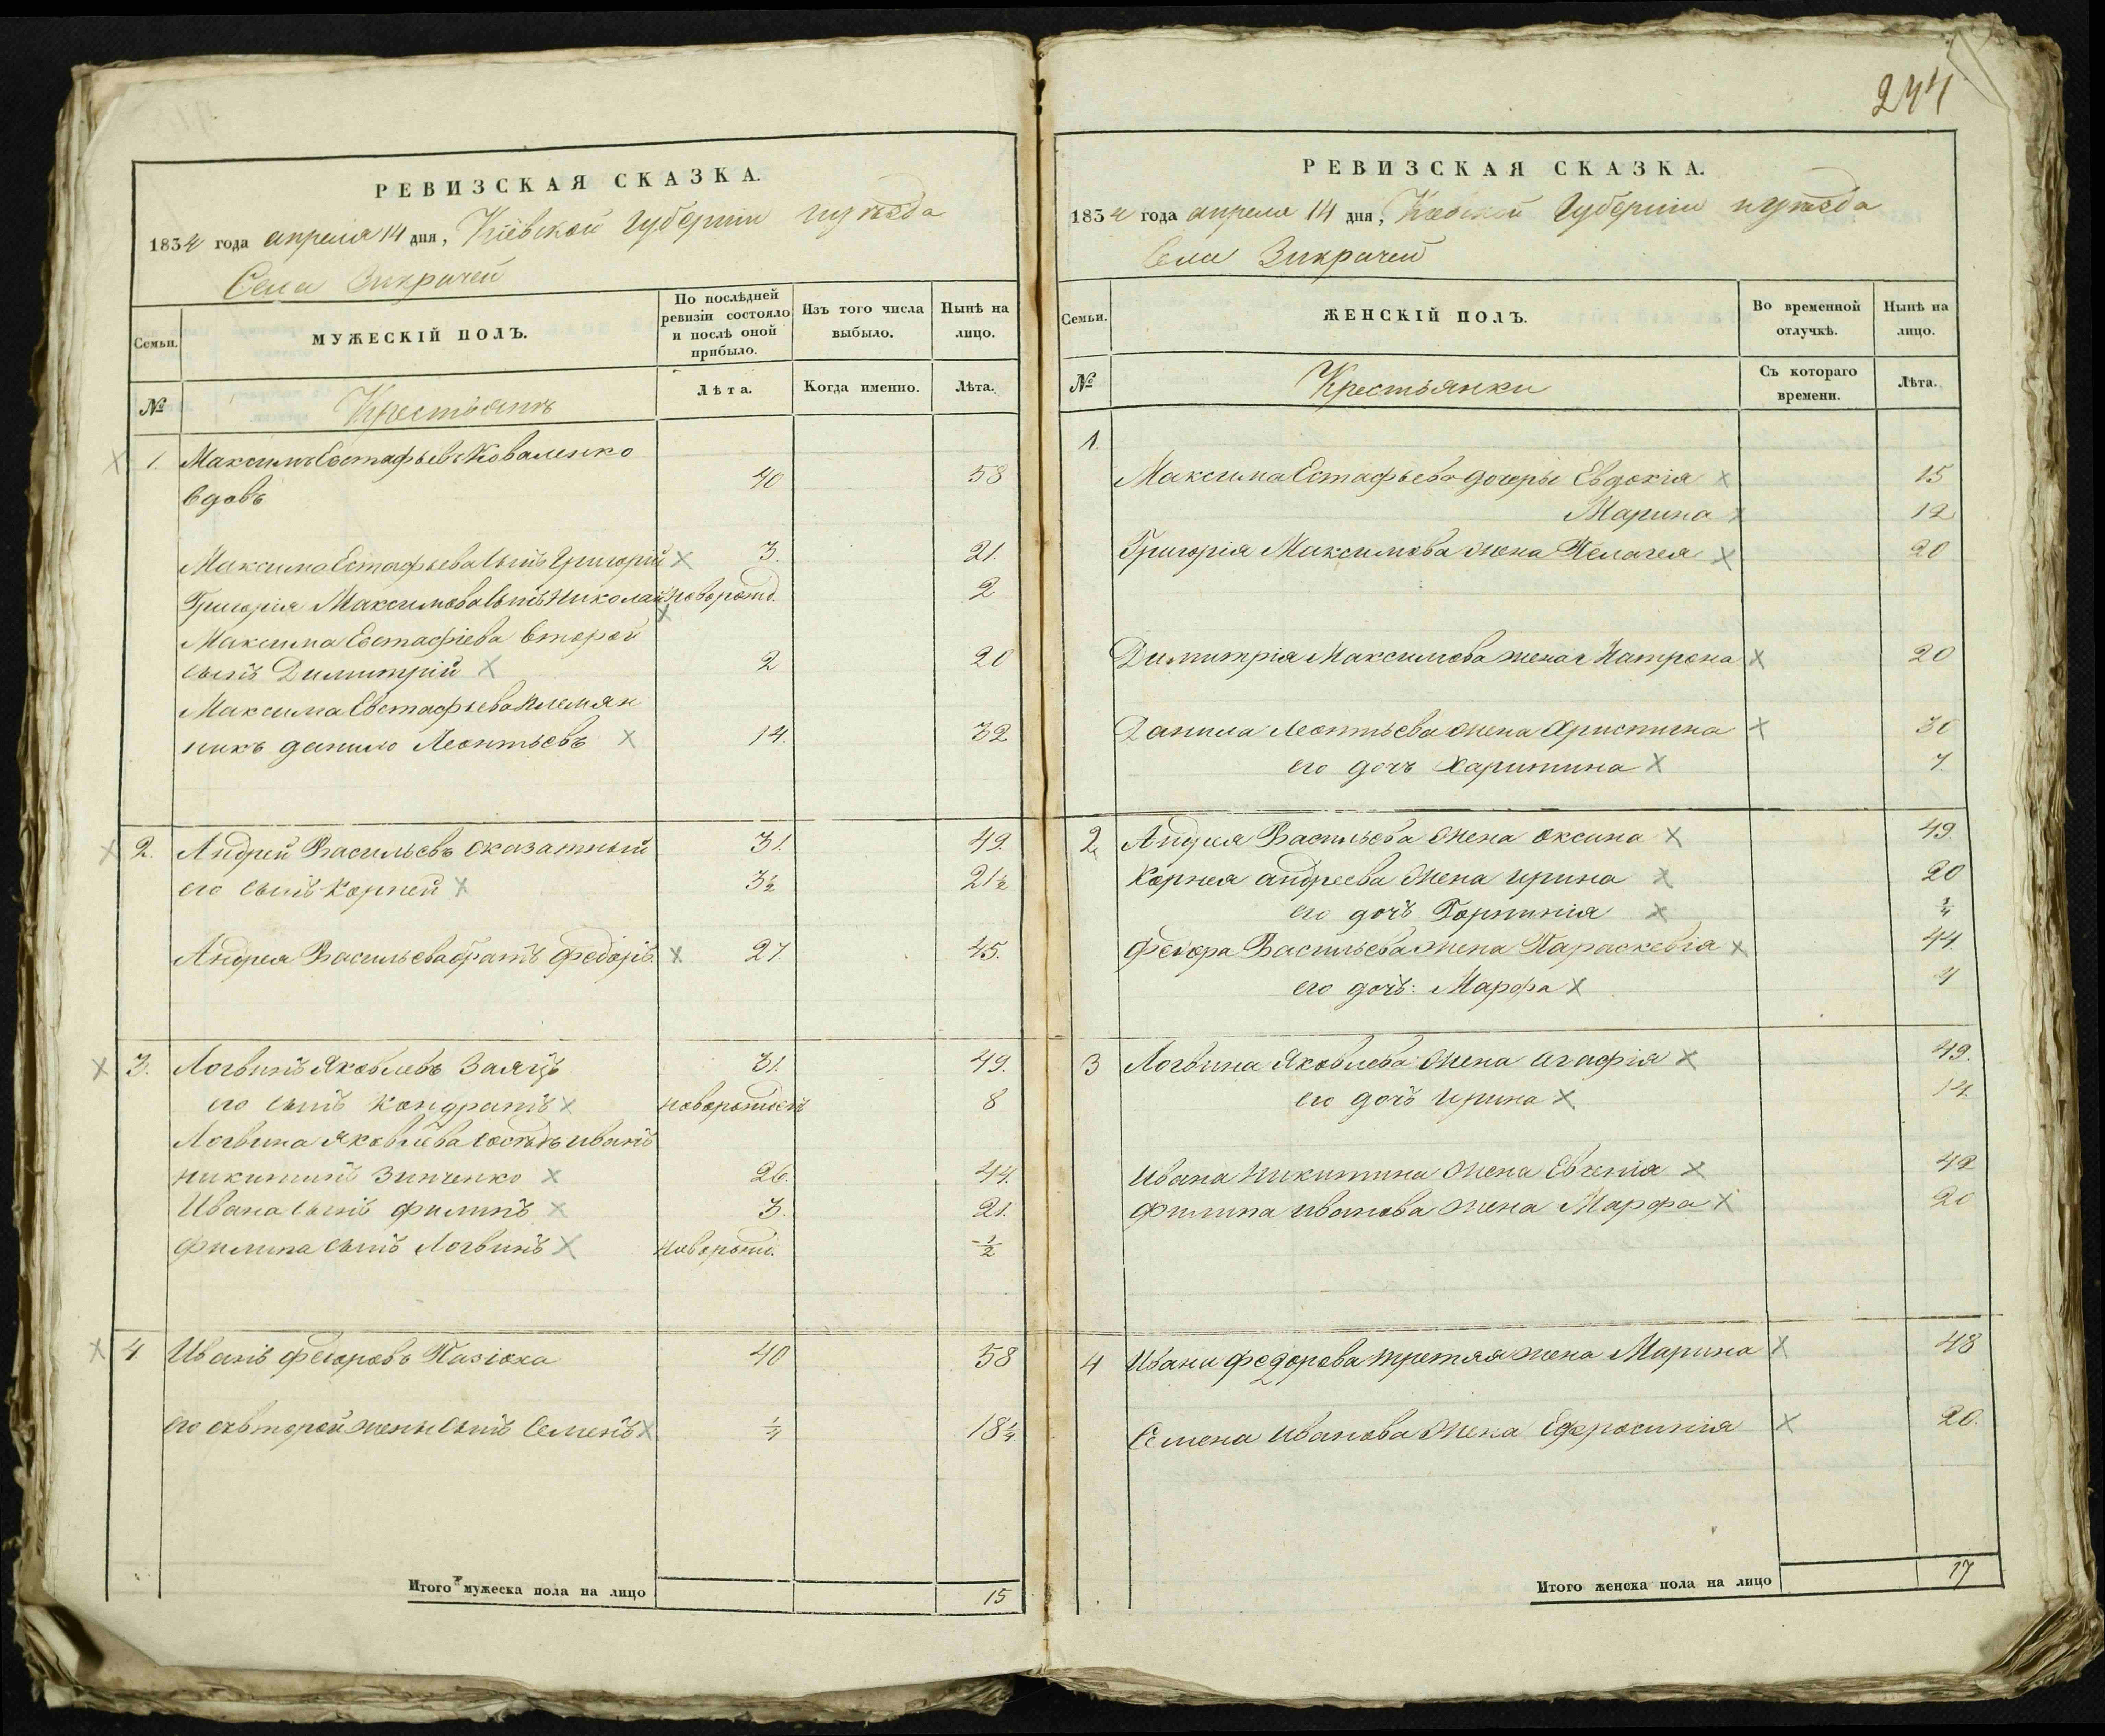 244
РЕВИЗСКАЯ СКАЗКА.
1834 года апреля 14 дня, Кіевской Губерніи и уѣзда
Села Викрачей
Семьи.
МУЖЕСКІЙ ПОЛЪ.
По послѣдней ревизіи состояло и послѣ оной прибыло.
Изъ того числа выбыло.
Нынѣ на лицо.
№
Крестьянъ
Лѣта.
Когда именно.
Лѣта.
1. Максимъ Евстафьевъ Коваленко
вдовъ 40 58
Максима Естафьева сынъ Григорій 3. 21.
Григорія Максимова сынъ Николай новорожд. 2
Максима Евстафіева второй
сынъ Димитрій 2 20
Максима Евстафьева племян
никъ данило Леонтьевъ 14. 32
2. Андрей Васильевъ сказатный 31. 49.
его сынъ Корней 3½ 21½
Андрея Васильева братъ Федоръ 27. 45.
3. Логвинъ Яковлевъ Заяцъ 31. 49.
его сынъ Кондратъ новорожденъ 8
Логвина Яковлева соседъ иванъ
никитинъ Зинченко 26. 44.
Ивана сынъ филипъ 3. 21.
филипа сынъ Логвинъ новорожд. ½
4 Иванъ Федоровъ Пасіока 40 58
его отъ второй жены сынъ Семенъ ¼ 18¼
Итого мужеска пола на лицо 15
РЕВИЗСКАЯ СКАЗКА.
1834 года апреля 14 дня, Кіевской Губерніи и уѣзда
Села Викрачей
Семьи.
ЖЕНСКІЙ ПОЛЪ.
Во временной отлучкѣ.
Нынѣ на лицо.
№
Крестьянки
Съ котораго времени.
Лѣта.
1.
Максима Естафьева дочеры Евдокія 15
Марина 12
Григорія Максимова жена Пелагея 20
Димитрія Максимова жена Матрона 20
Данила Леонтьева жена Христина 30
его дочь Харитина 7.
2 Андрея Васильева жена оксина 49.
Корнея андреева жена ирина 20
его дочъ Горпинія ¾
Федора Васильева жена Параскевія 44
его дочъ: Марфа 4
3 Логвина Яковлева жена агафія 49.
его дочъ ирина 14.
ивана никитина жена Евгенія 42
филипа иванова жена Марфа 20
4 Ивана федорова третяя жена Марина 48
Семена иванова жена Ефросинія 20.
Итого женска пола на лицо 17